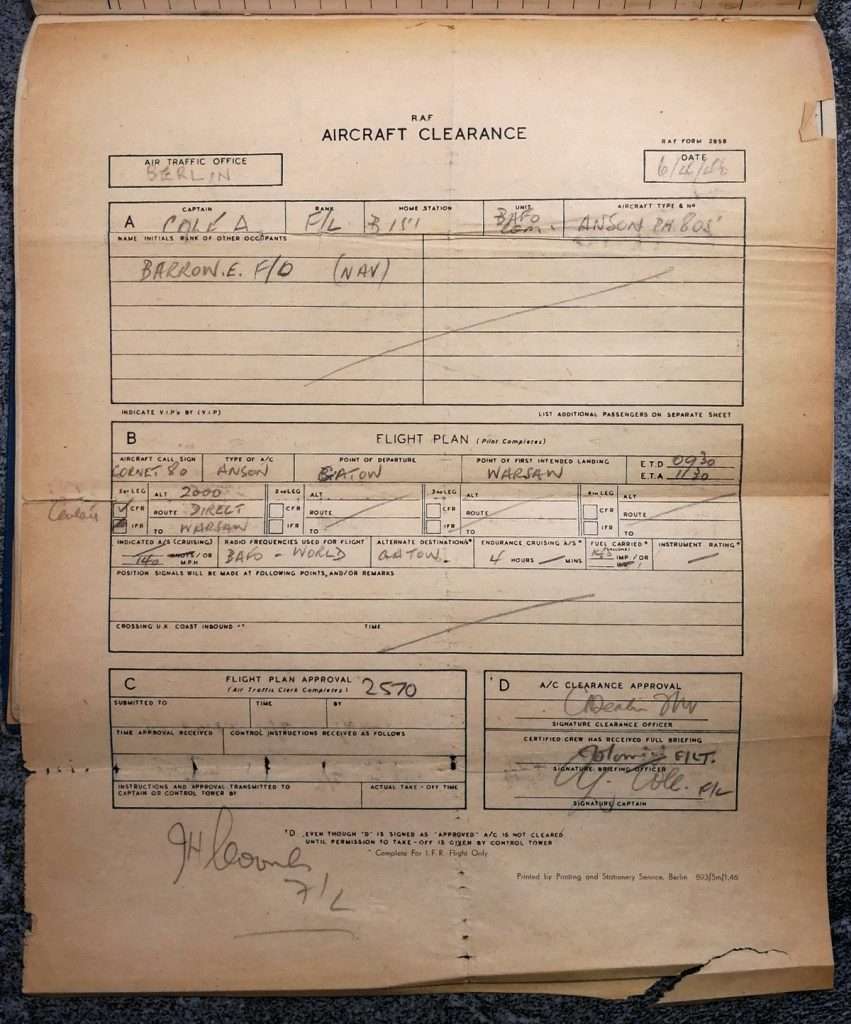 R.A.F
AIRCRAFT CLEARANCE
RAF FORM 2858
AIR TRAFFIC OFFICE
BERLIN
DATE
6/4/48
A
CAPTAIN
RANK
HOME STATION
UNIT
AIRCRAFT TYPE & Nº
F/L
BAFO
ANSON PH.805
NAME INITIALS RANK OF OTHER OCCUPANTS
BARROW.E. F/O (NAV)
INDICATE V.I.P's BY (V.I.P)
LIST ADDITIONAL PASSENGERS ON SEPARATE SHEET
B
FLIGHT PLAN (Pilot Completes)
AIRCRAFT CALL SIGN
TYPE OF A/C
POINT OF DEPARTURE
POINT OF FIRST INTENDED LANDING
E.T.D 0930
80
ANSON
GATOW
WARSAW
E.T.A 1130
LEG
ALT 2000
2ND LEG
ALT
3RD LEG
ALT
4TH LEG
ALT
CFR
ROUTE DIRECT
CFR
ROUTE
CFR
ROUTE
CFR
ROUTE
IFR
TO WARSAW
IFR
TO
IFR
TO
IFR
TO
INDICATED A/S (CRUISING)
RADIO FREQUENCIES USED FOR FLIGHT
ALTERNATE DESTINATION/S*
ENDURANCE CRUISING A/S*
FUEL CARRIED*
INSTRUMENT RATING*
140 KNOTS/OR M.P.H
BAFO - WORLD
GATOW.
4 HOURS — MINS
IMP/OR
POSITION SIGNALS WILL BE MADE AT FOLLOWING POINTS, AND/OR REMARKS
CROSSING U.K. COAST INBOUND
TIME
C
FLIGHT PLAN APPROVAL
(Air Traffic Clerk Completes)
2570
SUBMITTED TO
TIME
BY
TIME APPROVAL RECEIVED
CONTROL INSTRUCTIONS RECEIVED AS FOLLOWS
INSTRUCTIONS AND APPROVAL TRANSMITTED TO
CAPTAIN OR CONTROL TOWER BY
ACTUAL TAKE-OFF TIME
D
A/C CLEARANCE APPROVAL
SIGNATURE CLEARANCE OFFICER
CERTIFIED CREW HAS RECEIVED FULL BRIEFING
F/LT.
SIGNATURE BRIEFING OFFICER
F/L
SIGNATURE CAPTAIN
"D" EVEN THOUGH "D" IS SIGNED AS "APPROVED" A/C IS NOT CLEARED
UNTIL PERMISSION TO TAKE-OFF IS GIVEN BY CONTROL TOWER
* Complete For I.F.R. Flight Only
F/L
Printed by Printing and Stationery Service, Berlin 893/5m/1.46